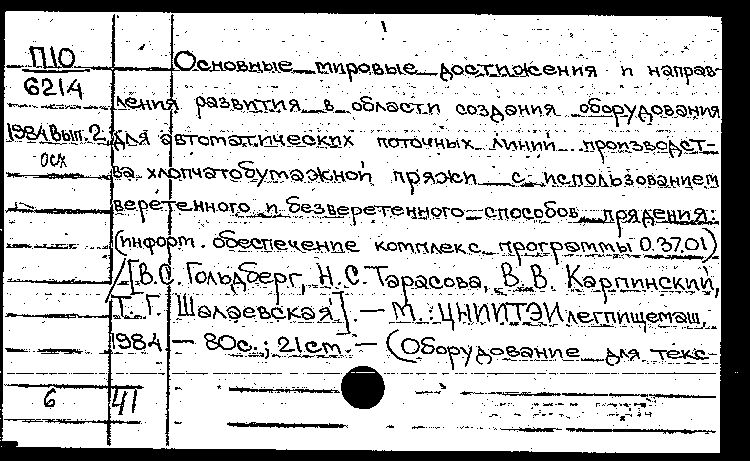 П10
6214
1984 Вып. 2
осх
Основные мировые достижения и направ-
ления развития в области создания оборудования
для автоматических поточных линий производст-
ва хлопчатобумажной пряжи с использованием
веретенного и безверетенного способов прядения:
(информ. обеспечение комплекс. программы 0.37.01)
/[В.С. Гольдберг, Н.С. Тарасова, В.В. Карпинский,
Т.Г. Шалаевская]. — М.: ЦНИИТЭИлегпищемаш,
1984 — 80с.; 21см. — (Оборудование для текс-
6 41